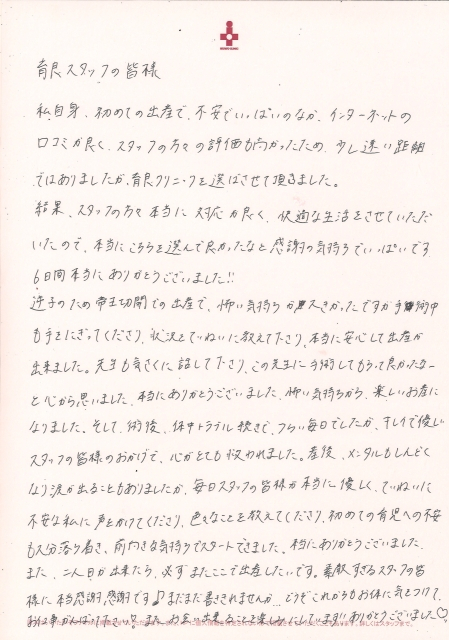 育良スタッフの皆様
私自身、初めての出産で、不安でいっぱいのなか、インターネットの
口コミが良く、スタッフの方々の評価も高かったため、少し遠い距離
ではありましたが、育良クリニックを選ばさせて頂きました。
結果、スタッフの方々本当に対応が良く、快適な生活をさせていただ
いたので、本当にこちらを選んで良かったなと感謝の気持ちでいっぱいです
6日間本当にありがとうございました!!
逆子のため帝王切開での出産で、怖い気持ちが大きかったですが手術中
も手をにぎってくださり、状況をていねいに教えて下さり、本当に安心して出産が
出来ました。先生も気さくに話して下さり、この先生に手術してもらって良かったなー
と心から思いました。本当にありがとうございました。怖い気持ちから、楽しいお産に
なりました。そして、術後、体中トラブル続きで、つらい毎日でしたが、キレイで優しい
スタッフの皆様のおかげで、心がとても救われました。産後、メンタルもしんどく
なり涙が出ることもありましたが、毎日スタッフの皆様が本当に優しく、ていねいに
不安な私に声をかけてくださり、色々なことを教えてくださり、初めての育児への不安
も大分落り着き、前向きな気持ちでスタートできました。本当にありがとうございました。
また、二人目が出来たら、必ずまたここで出産したいです。素敵すぎるスタッフの皆
様に本当感謝感謝です♪まだまだ書ききれませんが、どうぞこれからもお体に気をつけて、
お仕事がんばってください!!またお会い出来ることを楽しみにしています!!ありがとうございました♡